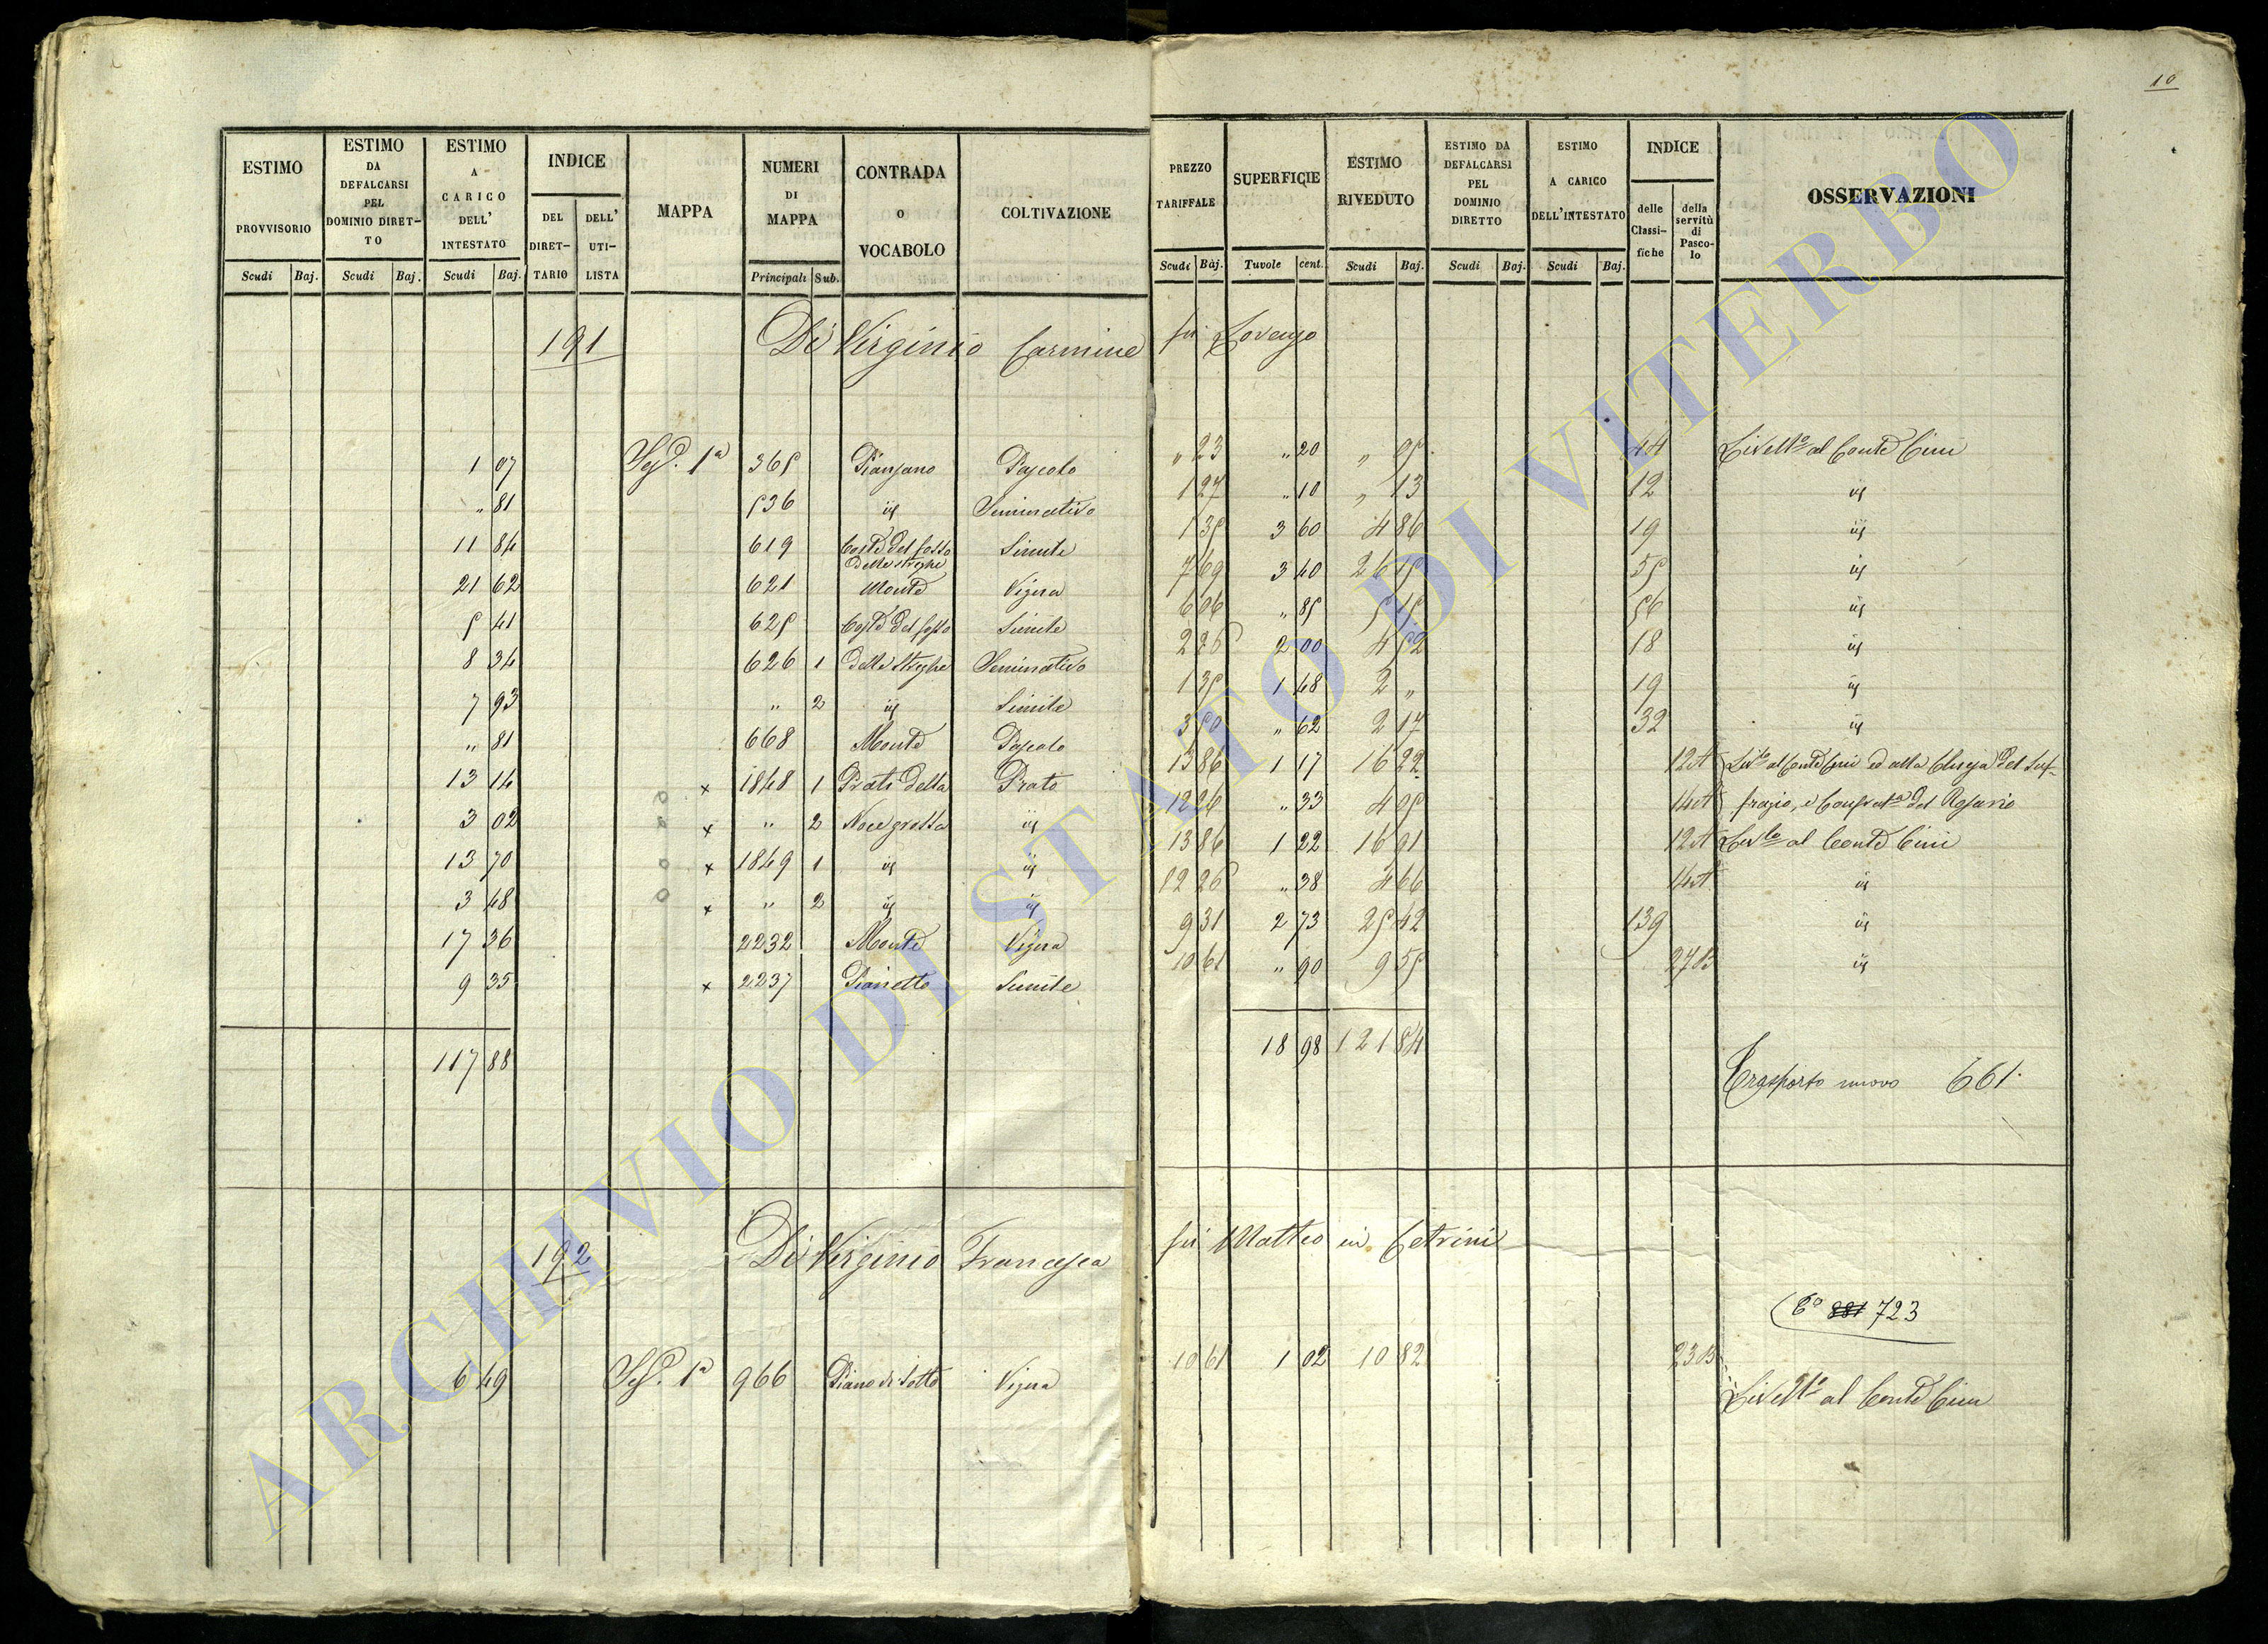 10
ESTIMO PROVVISORIO
ESTIMO DA DEFALCARSI PEL DOMINIO DIRET-TO
ESTIMO A CARICO DELL' INTESTATO
INDICE
DEL DIRET-TARIO
DELL' UTI-LISTA
MAPPA
NUMERI DI MAPPA
CONTRADA O VOCABOLO
COLTIVAZIONE
PREZZO TARIFFALE
SUPERFICIE
ESTIMO RIVEDUTO
ESTIMO DA DEFALCARSI PEL DOMINIO DIRETTO
ESTIMO A CARICO DELL'INTESTATO
INDICE
delle Classi-fiche
della servitù di Pasco-lo
OSSERVAZIONI
Scudi Baj. Scudi Baj. Scudi Baj. Principali Sub. Scudi Baj. Tavole cent. Scudi Baj. Scudi Baj. Scudi Baj.
191 Di Virginio Carmine fu Lorenzo
1 07 Sez. 1a 365 Piansano Pascolo " 23 " 20 " 05 44 Livello al Conte Cini
" 81 536 id Seminativo 1 27 " 10 " 13 12 id
11 84 619 Coste del fosso delle streghe Simile 1 35 3 60 4 86 19 id
21 62 621 Monte Vigna 7 69 3 40 26 15 55 id
5 41 625 Coste del fosso Simile 6 06 " 85 5 15 56 id
8 34 626 1 delle streghe Seminativo 2 26 2 00 4 52 18 id
7 93 " 2 id Simile 1 35 1 48 2 " 19 id
" 81 668 Monte Pascolo 3 50 " 62 2 17 32 id
13 14 x 1848 1 Prati della Prato 13 86 1 17 16 22 12 A Livo al Conte Cini ed alla Chiesa del Suf-
3 02 x " 2 Noce grossa id 12 26 " 33 4 05 14 A fragio, e Confrata del Rosario
13 70 x 1849 1 id id 13 86 1 22 16 91 12 A Livlo al Conte Cini
3 48 x " 2 id id 12 26 " 38 4 66 14 A id
17 36 2232 Monte Vigna 9 31 2 73 25 42 139 id
9 35 x 2237 Pianetto Simile 10 61 " 90 9 55 27 B id
117 88 18 98 121 84
Trasporto nuovo 661.
192 Di Virginio Francesca fu Matteo in Cetrini
Co 881 723
6 49 Sez. 1a 966 Piano di Sotto Vigna 10 61 1 02 10 82 23 B
Livello al Conte Cini
ARCHIVIO DI STATO DI VITERBO